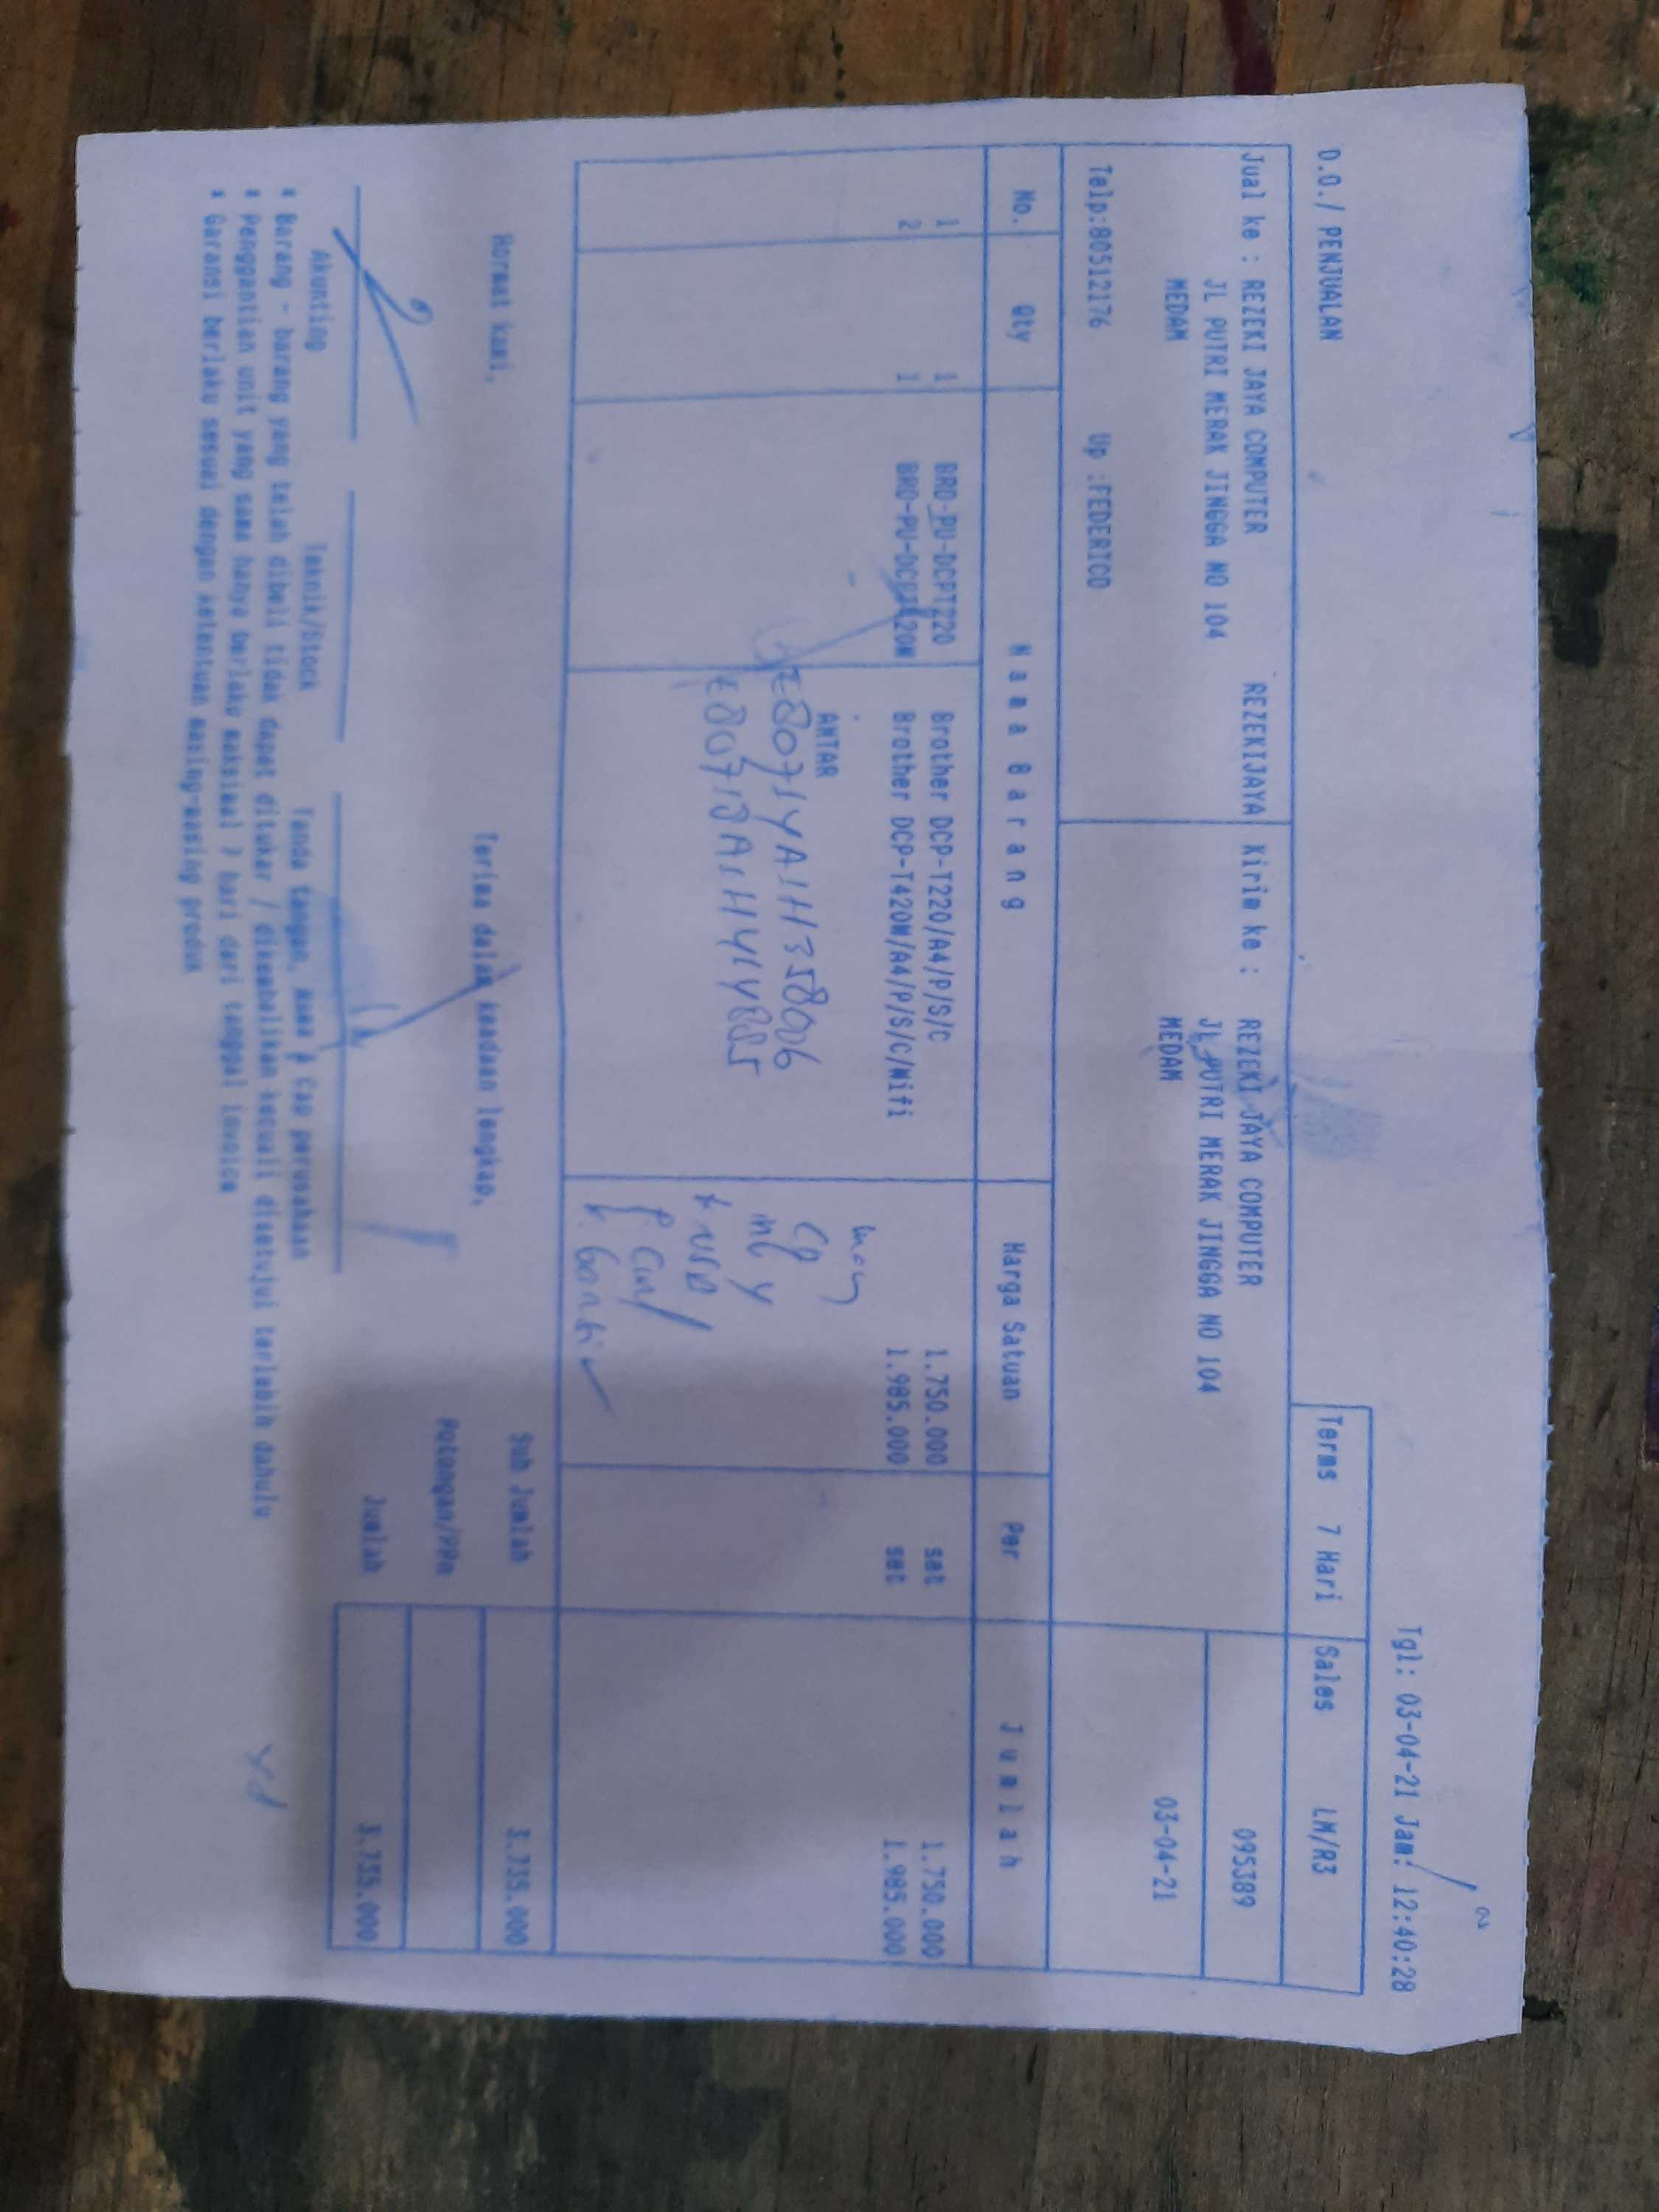 Tgl: 03-04-21 Jam: 12:40:28
D.O./ PENJUALAN
Terms 7 Hari Sales LM/R3
Jual ke : REZEKI JAYA COMPUTER REZEKIJAYA Kirim ke : REZEKI JAYA COMPUTER 095389
JL PUTRI MERAK JINGGA NO 104 JL PUTRI MERAK JINGGA NO 104
MEDAM MEDAM 03-04-21
Telp:80512176 Up :FEDERICO
No. Qty Nama Barang Harga Satuan Per Jumlah
1 1 BRO-PU-DCPT220 Brother DCP-T220/A4/P/S/C 1.750.000 set 1.750.000
2 1 BRO-PU-DCPT420W Brother DCP-T420W/A4/P/S/C/Wifi 1.985.000 set 1.985.000
ANTAR
Hormat kami, Terima dalam keadaan lengkap, Sub Jumlah 3.735.000
Potongan/PPn
Jumlah 3.735.000
Akunting Teknik/Stock Tanda tangan, nama & Cap perusahaan
* Barang - barang yang telah dibeli tidak dapat ditukar / dikembalikan kecuali disetujui terlebih dahulu
* Penggantian unit yang sama hanya berlaku maksimal 7 hari dari tanggal invoice
* Garansi berlaku sesuai dengan ketentuan masing-masing produk